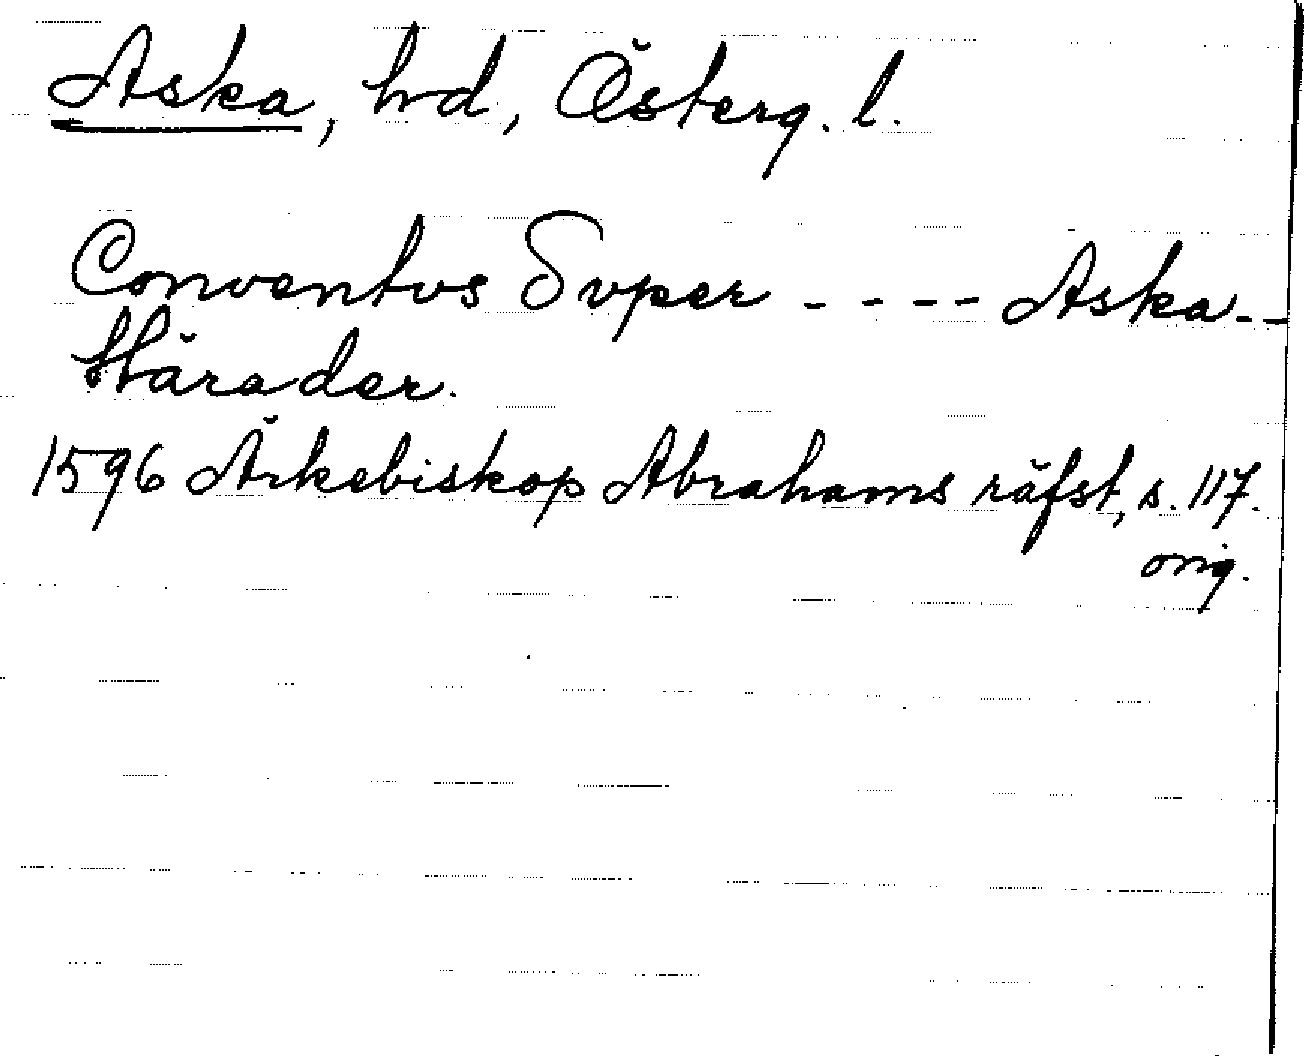 Aska, hrd, Österg. l.
Conventus Super - - - - Aska - -
Härader.
1596 Ärkebiskop Abrahams räfst, s. 117.
orig.